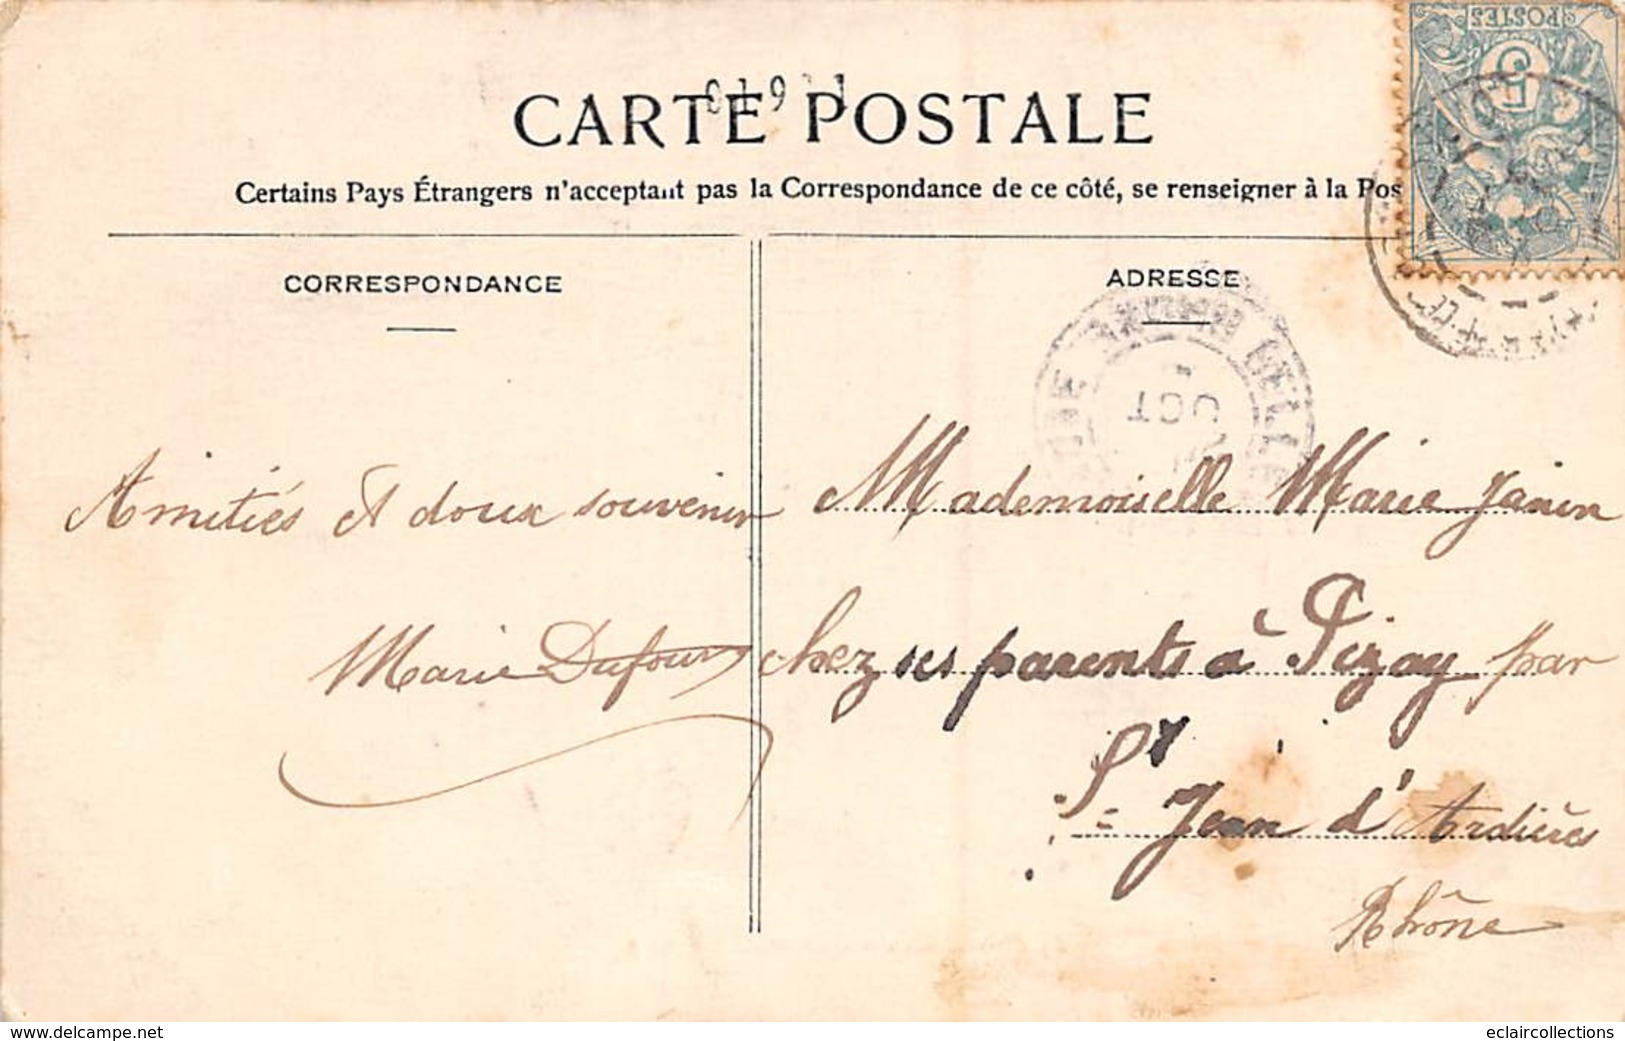 POSTES
5
CARTE POSTALE
Certains Pays Étrangers n'acceptant pas la Correspondance de ce côté, se renseigner à la Pos
CORRESPONDANCE
ADRESSE
OCT
Amitiés et doux souvenir
Marie Dufour
Mademoiselle Marie Janin
chez ses parents à Pizay par
St Jean d'Ardières
Rhône
www.delcampe.net
eclaircollections